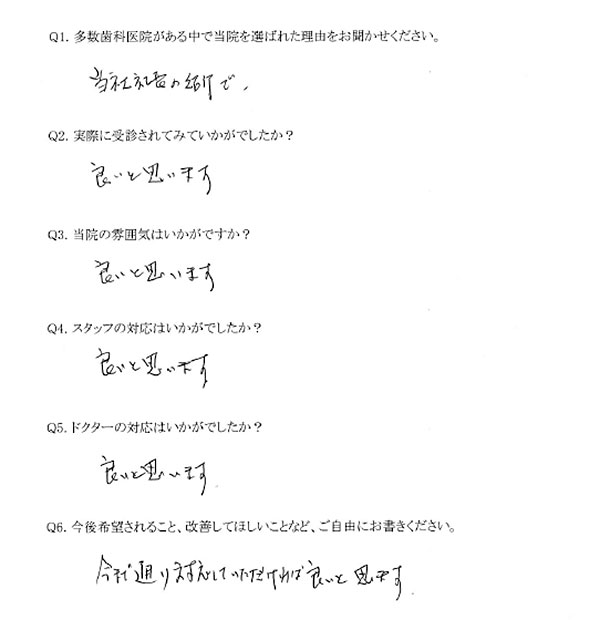 Q1. 多数歯科医院がある中で当院を選ばれた理由をお聞かせください。
当社社員の紹介で、
Q2. 実際に受診されてみていかがでしたか？
良いと思います
Q3. 当院の雰囲気はいかがですか？
良いと思います
Q4. スタッフの対応はいかがでしたか？
良いと思います
Q5. ドクターの対応はいかがでしたか？
良いと思います.
Q6. 今後希望されること、改善してほしいことなど、ご自由にお書きください。
今まで通り対応していただければ良いと思います.